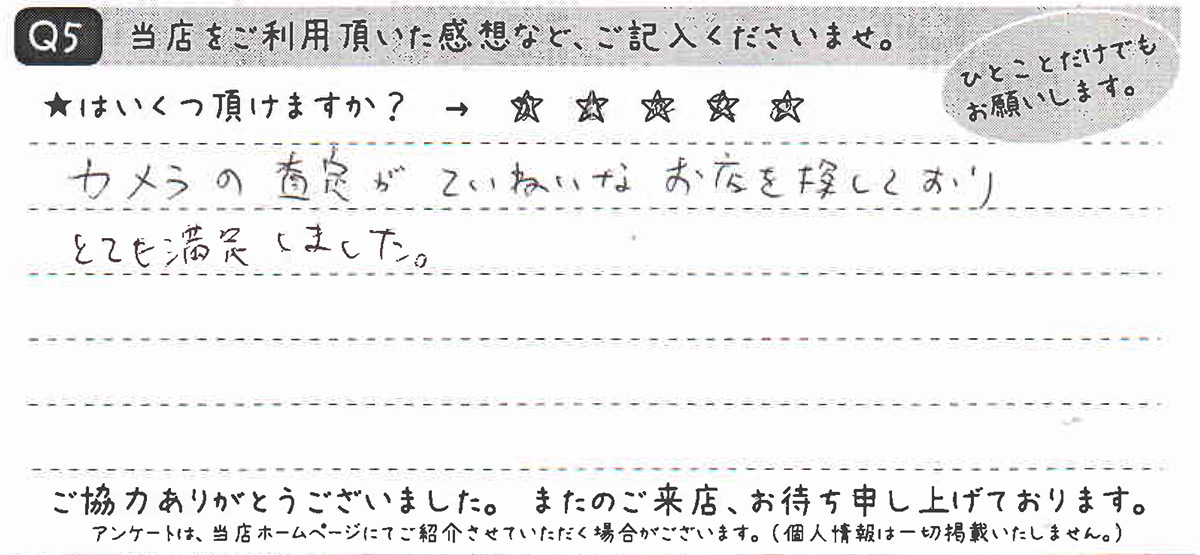 Q5 当店をご利用頂いた感想など、ご記入くださいませ。
ひとことだけでも
お願いします。
★はいくつ頂けますか？ → ☆ ☆ ☆ ☆ ☆
カメラの査定がていねいなお店を探しており
とても満足しました。
ご協力ありがとうございました。またのご来店、お待ち申し上げております。
アンケートは、当店ホームページにてご紹介させていただく場合がございます。（個人情報は一切掲載いたしません。）